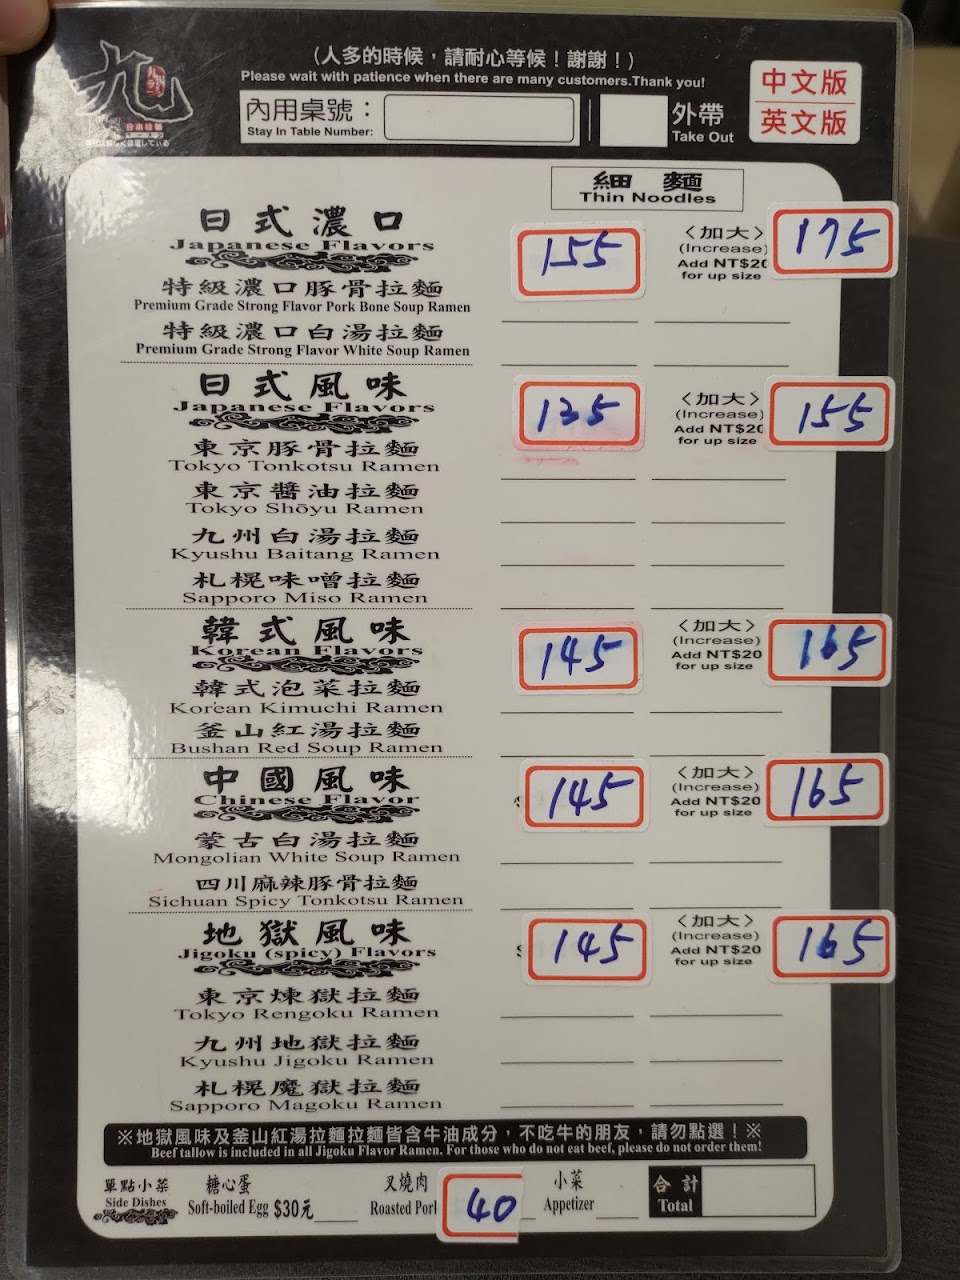 (人多的時候，請耐心等候！謝謝！)
Please wait with patience when there are many customers.Thank you!
九
日本拉麵
內用桌號：
Stay In Table Number:
外帶
Take Out
中文版
英文版
細麵
Thin Noodles
日式濃口
Japanese Flavors
155
〈加大〉
(Increase)
Add NT$20
for up size
175
特級濃口豚骨拉麵
Premium Grade Strong Flavor Pork Bone Soup Ramen
特級濃口白湯拉麵
Premium Grade Strong Flavor White Soup Ramen
日式風味
Japanese Flavors
135
〈加大〉
(Increase)
Add NT$20
for up size
155
東京豚骨拉麵
Tokyo Tonkotsu Ramen
東京醬油拉麵
Tokyo Shōyu Ramen
九州白湯拉麵
Kyushu Baitang Ramen
札幌味噌拉麵
Sapporo Miso Ramen
韓式風味
Korean Flavors
145
〈加大〉
(Increase)
Add NT$20
for up size
165
韓式泡菜拉麵
Korean Kimuchi Ramen
釜山紅湯拉麵
Bushan Red Soup Ramen
中國風味
Chinese Flavor
145
〈加大〉
(Increase)
Add NT$20
for up size
165
蒙古白湯拉麵
Mongolian White Soup Ramen
四川麻辣豚骨拉麵
Sichuan Spicy Tonkotsu Ramen
地獄風味
Jigoku (spicy) Flavors
145
〈加大〉
(Increase)
Add NT$20
for up size
165
東京煉獄拉麵
Tokyo Rengoku Ramen
九州地獄拉麵
Kyushu Jigoku Ramen
札幌魔獄拉麵
Sapporo Magoku Ramen
※地獄風味及釜山紅湯拉麵拉麵皆含牛油成分，不吃牛的朋友，請勿點選！※
Beef tallow is included in all Jigoku Flavor Ramen. For those who do not eat beef, please do not order them!
單點小菜
Side Dishes
糖心蛋
Soft-boiled Egg $30元
叉燒肉
Roasted Pork
40
小菜
Appetizer
合計
Total